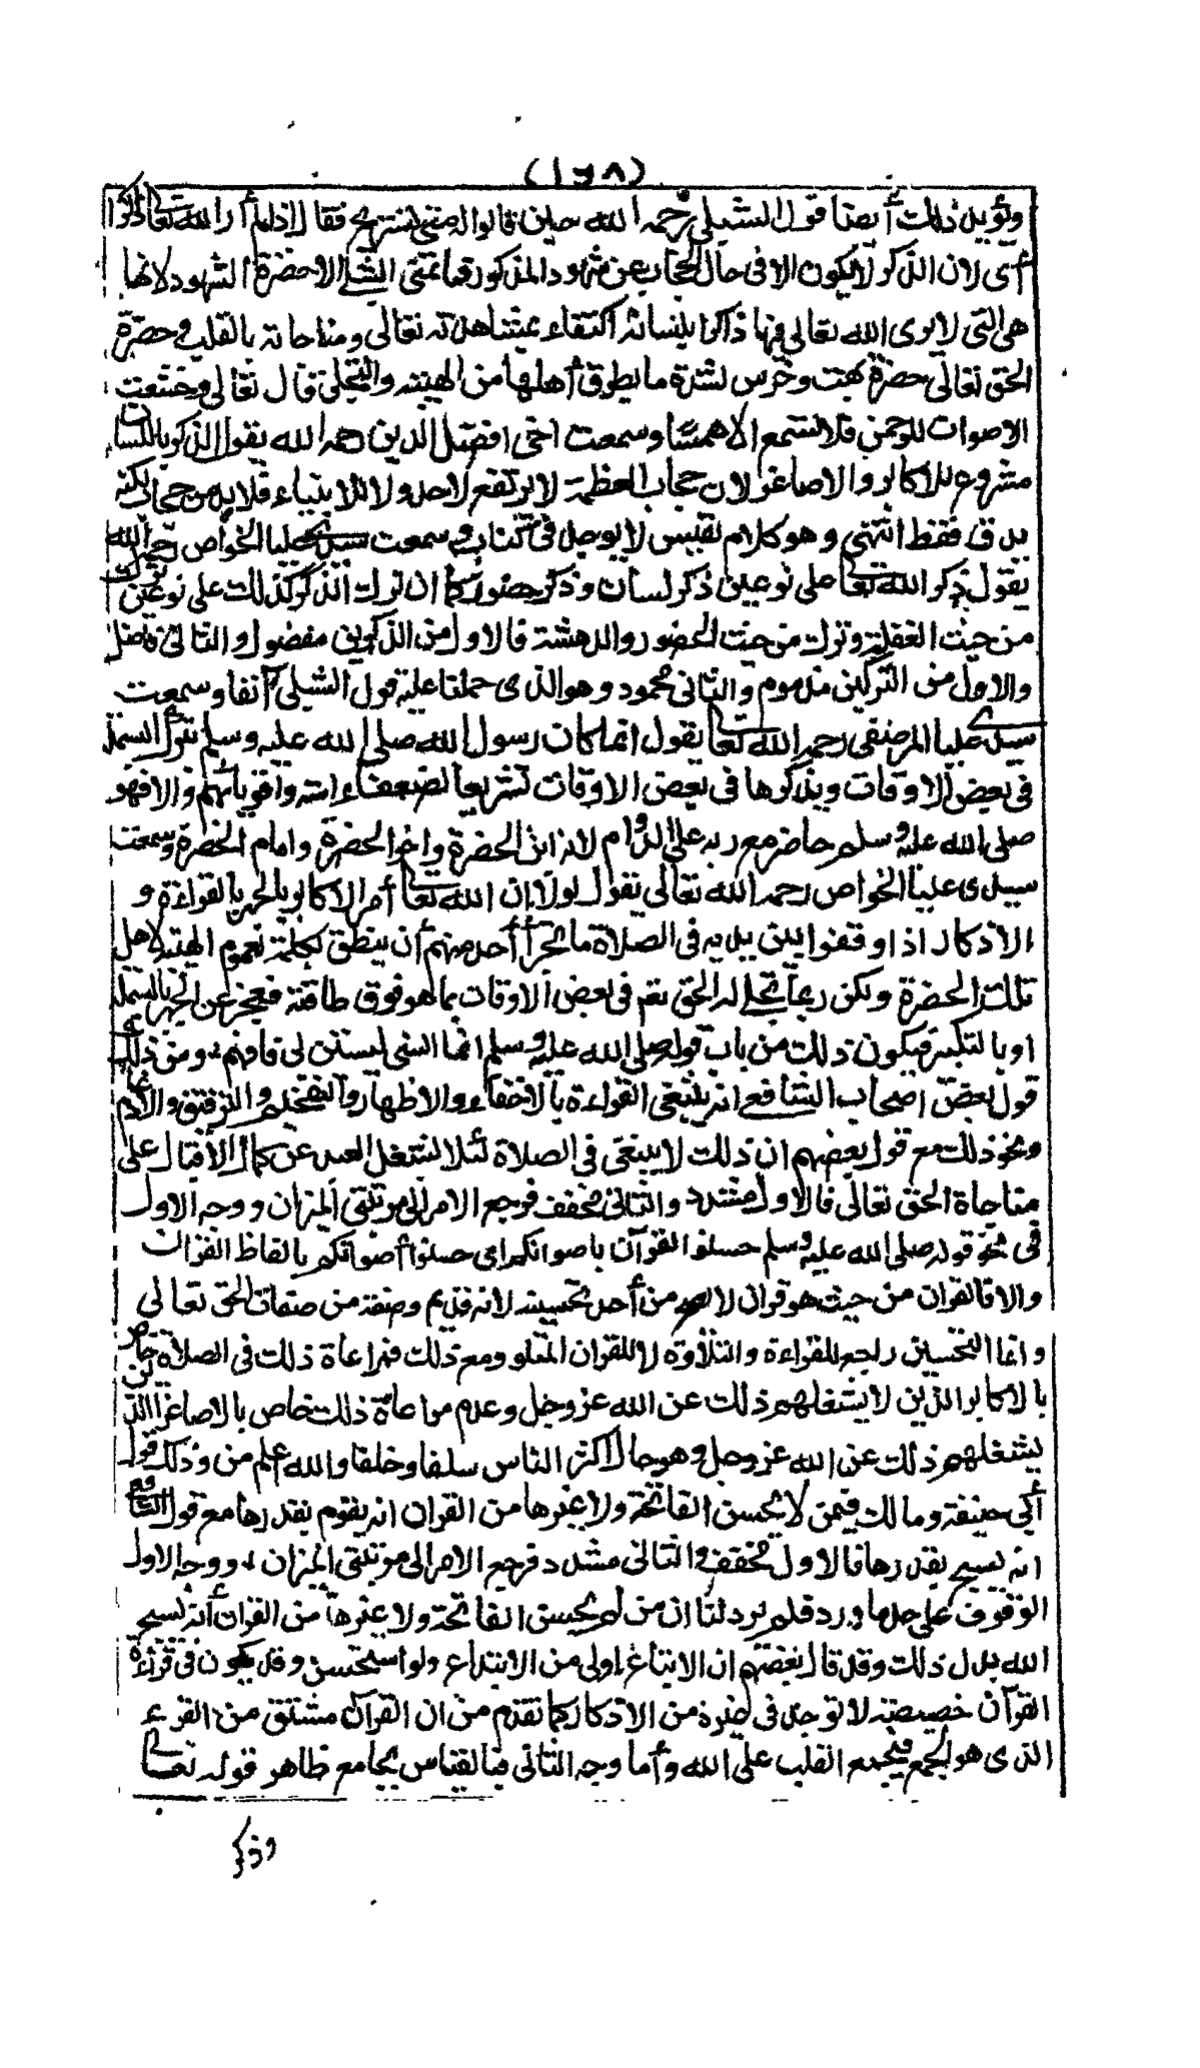 (١٣٨)
ويؤيد ذلك أيضا قول الشبلي رحمه الله حين قالوا له متى تستريح فقال اذا لم أر الله تعالى ذاكرا
أى لان الذكر لا يكون الا فى حال الحجاب عن شهود المذكور فما تمنى الشبلى الا حضرة الشهود لانها
هى التى لا يرى الله تعالى فيها ذاكرا بلسانه اكتفاء بمشاهدته تعالى ومناجاته بالقلب فى حضرة
الحق تعالى حضرة بهت وخرس لشدة ما يطرق أهلها من الهيبة والتجلى قال تعالى وخشعت
الاصوات للرحمن فلا تسمع الا همسا وسمعت اخى افضل الدين رحمه الله يقول الذكر باللسان
مشروع للاكابر والاصاغر لان حجاب العظمة لا يرتفع لاحد ولا للانبياء فلا بد من حجاب لكنه
يدق فقط انتهى وهو كلام نفيس لا يوجد فى كتاب وسمعت سيدى عليا الخواص رحمه الله
يقول ذكر الله تعالى على نوعين ذكر لسان وذكر حضور كما ان ترك الذكر كذلك على نوعين ترك
من حيث الغفلة وترك من حيث الحضور والدهشة فالاول من الذكرين مفضول والثانى فاضل
والاول من التركين مذموم والثانى محمود وهو الذى حملنا عليه قول الشبلى آنفا وسمعت
سيدى عليا المرصفى رحمه الله تعالى يقول انما كان رسول الله صلى الله عليه وسلم يترك البسملة
فى بعض الاوقات ويذكرها فى بعض الاوقات تشريعا لضعفاء امته واقويائهم والا فهو
صلى الله عليه وسلم حاضر مع ربه على الدوام لانه ابن الحضرة واخو الحضرة وامام الحضرة وسمعت
سيدى عليا الخواص رحمه الله تعالى يقول لولا ان الله تعالى أمر الاكابر بالجهر بالقراءة و
الاذكار اذا وقفوا بين يديه فى الصلاة ما تجرأ أحد منهم أن ينطق بكلمة لعموم الهيبة لاهل
تلك الحضرة ولكن ربما تجلى له الحق نعم فى بعض الاوقات بما هو فوق طاقته فعجز عن الجهر بالبسملة
او بالتكبير فيكون ذلك من باب قوله صلى الله عليه وسلم انما انسى ليستن لى فافهم ومن ذلك
قول بعض اصحاب الشافعى انه ينبغى القراءة بالاخفاء والاظهار والتفخيم والترقيق والادغام
ونحو ذلك مع قول بعضهم ان ذلك لا ينبغى فى الصلاة لئلا يشتغل العبد عن كمال الاقبال على
مناجاة الحق تعالى فالاول مشدد والثانى مخفف فرجع الامر الى مرتبتى الميزان ووجه الاول
فى نحو قوله صلى الله عليه وسلم حسنوا القرآن باصواتكم اى حسنوا أصواتكم بالفاظ القرآن
والا فالقران من حيث هو قران لا يصح من أحد تحسينه لانه قديم وصفة من صفات الحق تعالى
وانما التحسين راجع للقراءة والتلاوة لا للقران المتلو ومع ذلك فمراعاة ذلك فى الصلاة خاص
بالاكابر الذين لا يشغلهم ذلك عن الله عز وجل وعدم مراعاة ذلك خاص بالاصاغر الذين
يشغلهم ذلك عن الله عز وجل وهو حال اكثر الناس سلفا وخلفا والله اعلم من وذلك قول
أبى حنيفة ومالك فيمن لا يحسن الفاتحة ولا غيرها من القران انه يقوم بقدرها مع قول الشافعى
انه يسبح بقدرها فالاول مخفف والثانى مشدد فرجع الامر الى مرتبتى الميزان ووجه الاول
الوقوف على حد ما ورد فلم يرد لنا ان من لم يحسن الفاتحة ولا غيرها من القران أنه يسبح
الله بدل ذلك وقد قال بعضهم ان الاتباع اولى من الابتداع ولو استحسن وقد يكون فى قراءة
القرآن خصيصة لا توجد فى غيره من الاذكار كما تقدم من ان القرآن مشتق من القرء
الذى هو الجمع فيجمع القلب على الله وأما وجه الثانى فبالقياس بجامع ظاهر قوله تعالى
وذكر